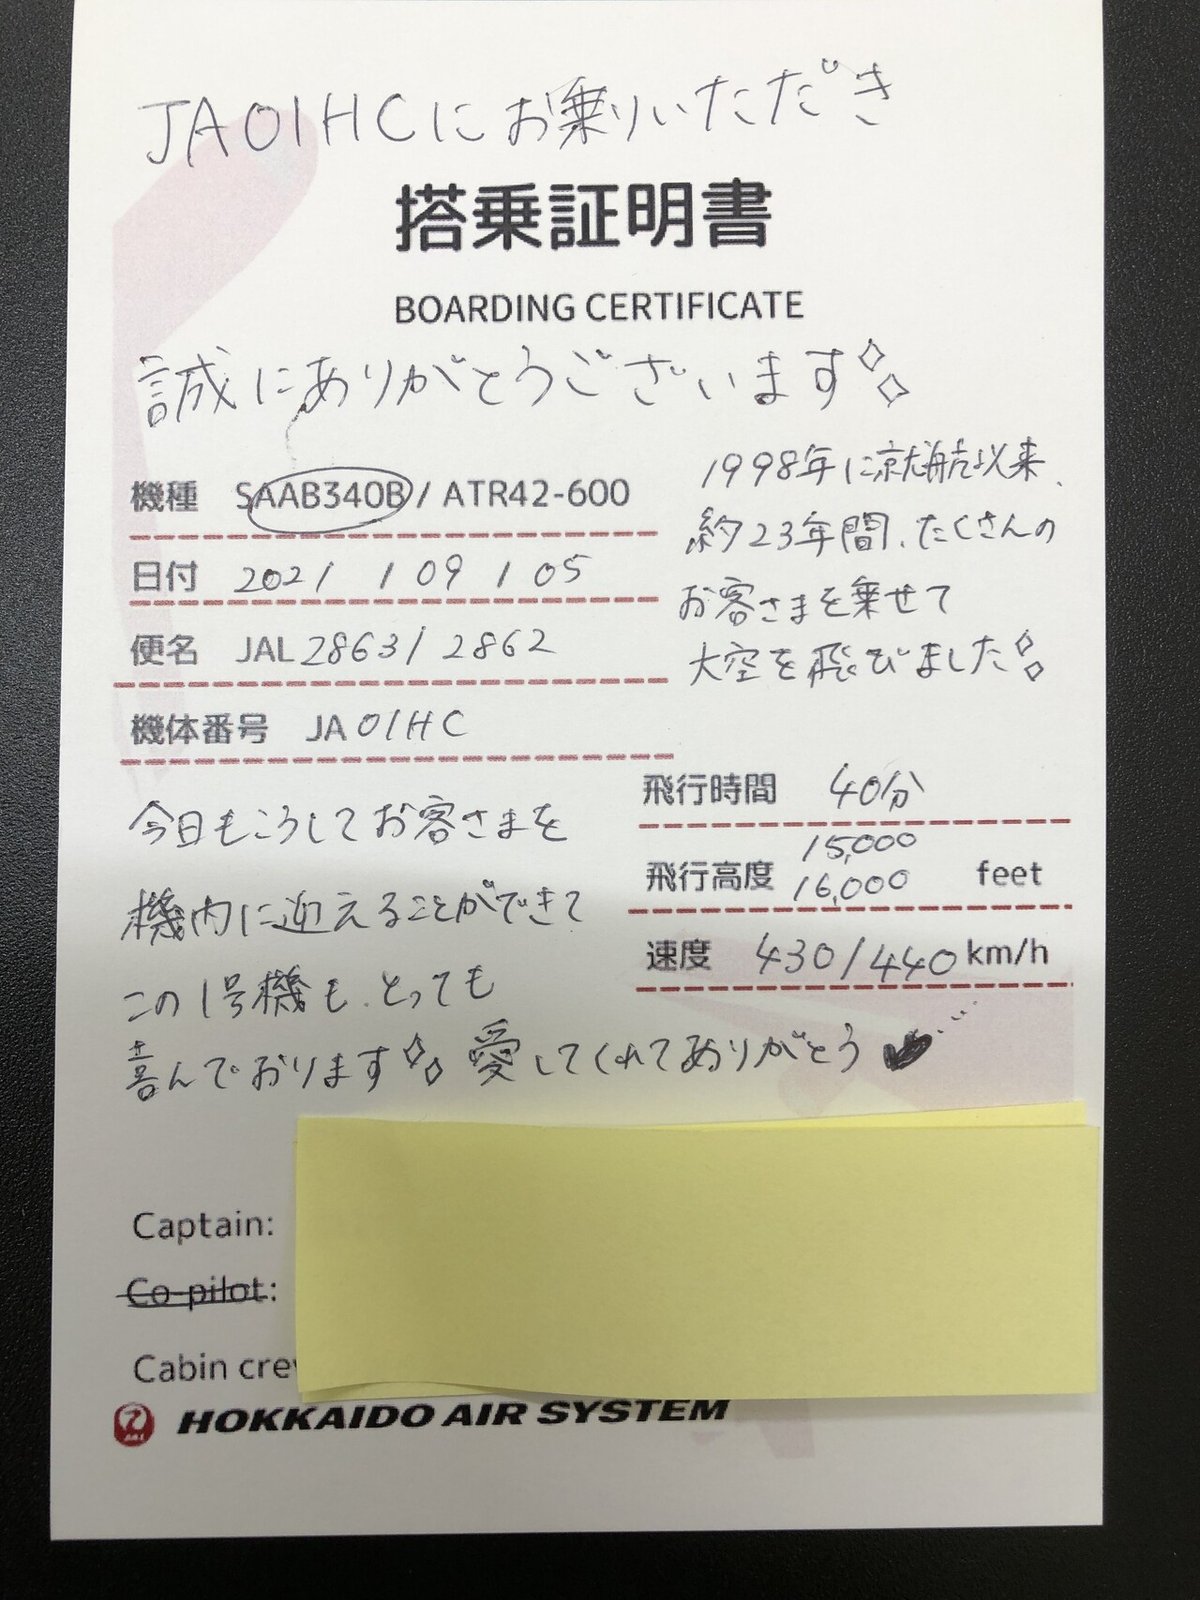 JA01HCにお乗りいただき
搭乗証明書
BOARDING CERTIFICATE
誠にありがとうございます
機種 SAAB340B / ATR42-600
日付 2021 / 09 / 05
便名 JAL 2863 / 2862
機体番号 JA 01HC
1998年に就航以来、
約23年間、たくさんの
お客さまを乗せて
大空を飛びました
飛行時間 40分
飛行高度 15,000 16,000 feet
速度 430/440 km/h
今日もこうしてお客さまを
機内に迎えることができて
この1号機も、とっても
喜んでおります 愛してくれてありがとう
Captain:
Co-pilot:
Cabin cre
JAL HOKKAIDO AIR SYSTEM